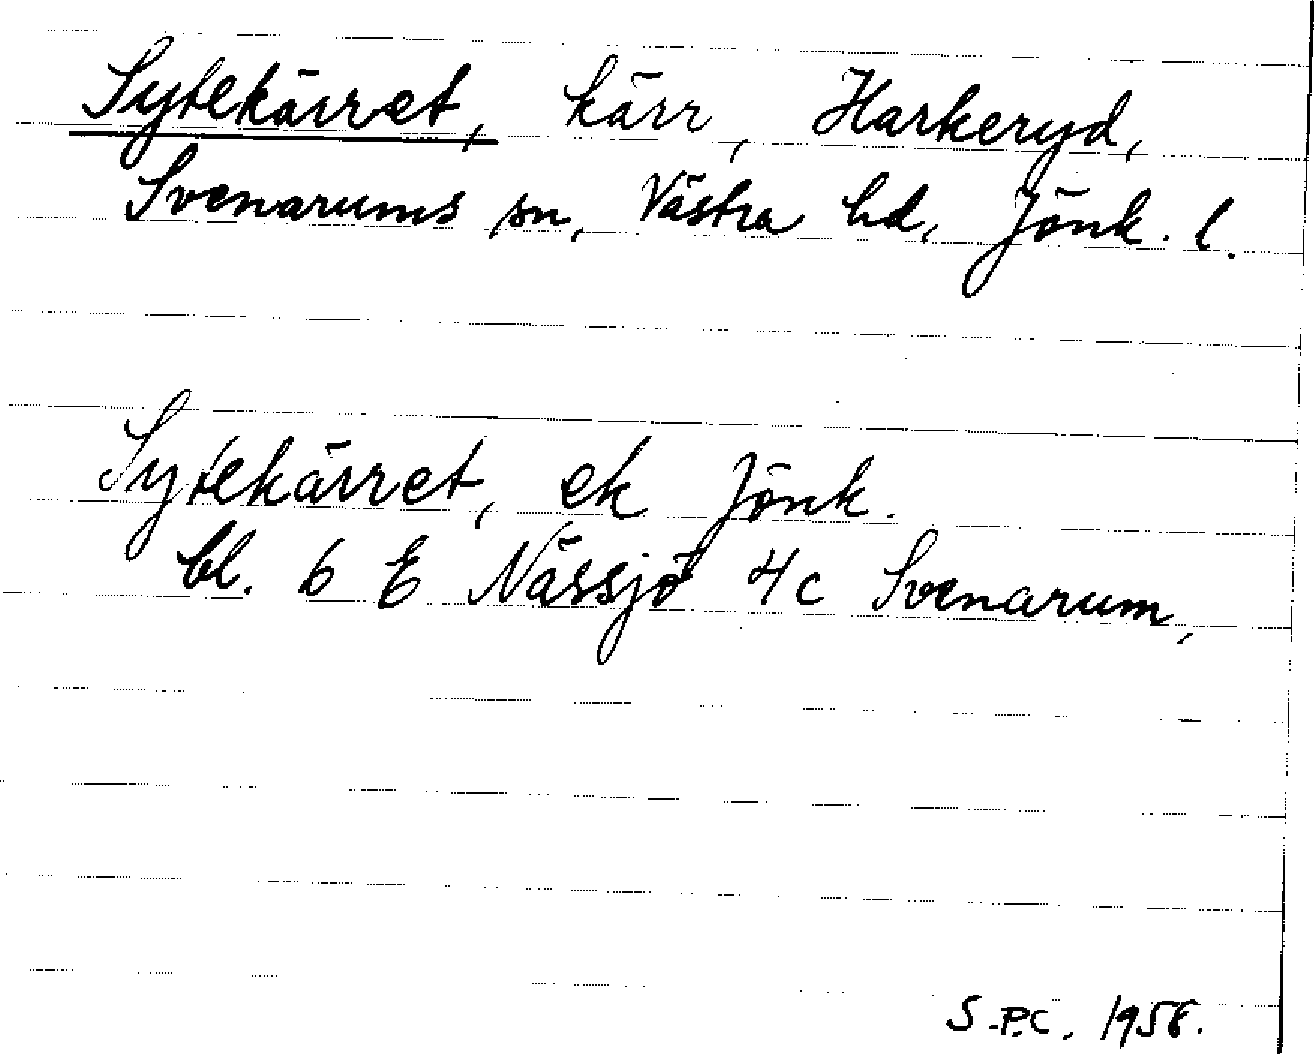 Sytekärret, kärr, Harkeryd,
Svenarums sn, Västra hd, Jönk. l.
Sytekärret, ek Jönk.
bl. 6 E Nässjö 4c Svenarum,
S.P.C. 1958.